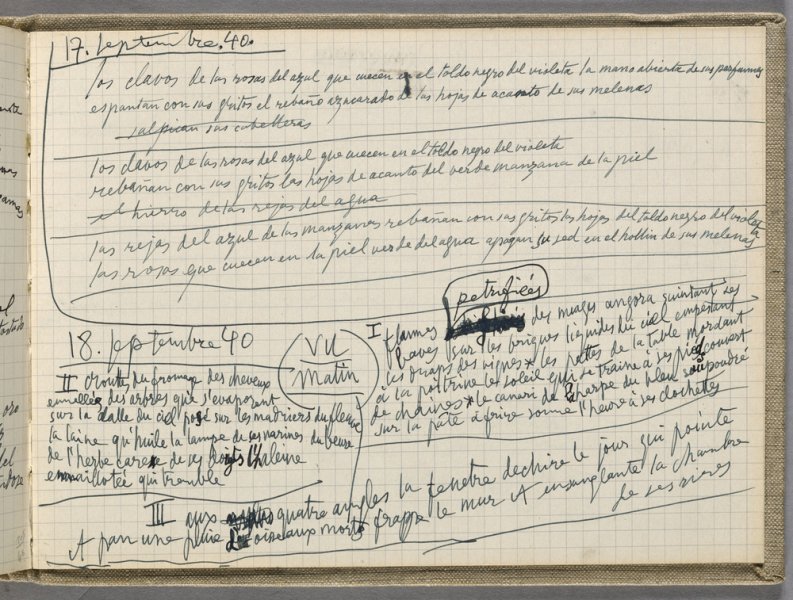 17. septembre. 40.
los clavos de las rosas del azul que cuecen en el toldo negro del violeta la mano abierta de sus perfumes
espantan con sus gritos el rebaño azucarado de las hojas de acanto de sus melenas
salpican sus cabelleras
los clavos de las rosas del azul que cuecen en el toldo negro del violeta
rebañan con sus gritos las hojas de acanto del verde manzana de la piel
el hierro de las rejas del agua
las rejas del azul de las manzanas rebañan con sus gritos las hojas del toldo negro del violeta
las rosas que cuecen en la piel verde del agua apagan su sed en el hollin de sus melenas
18. septembre 40
VU
matin
petrifiés
I flammes des nuages angora suintant ses
baves sur les briques liquides du ciel empestant
les draps des vignes les pattes de la table mordant
à la poitrine le soleil qui se traine à ses pieds couvert
de chaines le canari de l'echarpe du bleu saupoudré
sur la pâte à frire sonne l'heure à ses clochettes
II croute du fromage des cheveux
emmêlés des arbres que s'evaporent
sur la dalle du ciel posé sur les madriers du fleuve
la laine qu'huile la lampe de ses narines du beurre
de l'herbe caresse de ses doigts l'haleine
emmaillotée qui tremble
III aux quatre angles la fenetre dechire le jour qui pointe
A pan une pluie d'oiseaux morts frappe le mur et ensanglante la chambre
de ses rires